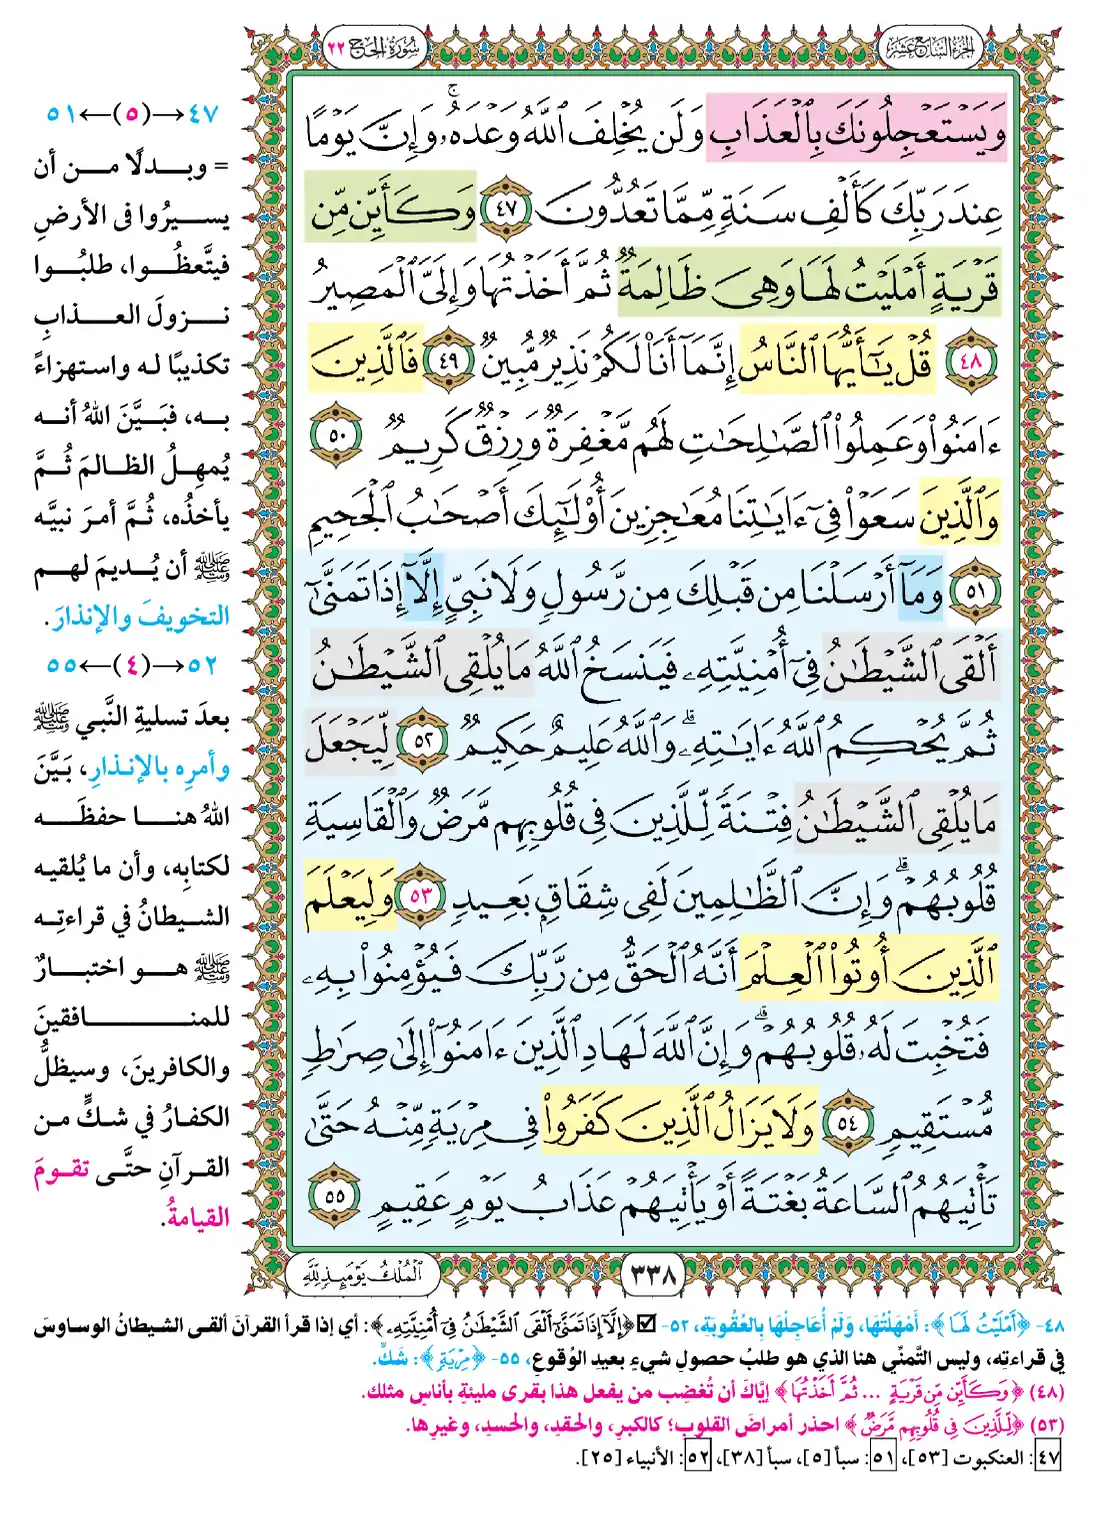 الجزء السابع عشر
سورة الحج ٢٢
وَيَسْتَعْجِلُونَكَ بِٱلْعَذَابِ وَلَن يُخْلِفَ ٱللَّهُ وَعْدَهُۥۚ وَإِنَّ يَوْمًا
عِندَ رَبِّكَ كَأَلْفِ سَنَةٍ مِّمَّا تَعُدُّونَ ٤٧ وَكَأَيِّن مِّن
قَرْيَةٍ أَمْلَيْتُ لَهَا وَهِىَ ظَالِمَةٌ ثُمَّ أَخَذْتُهَا وَإِلَىَّ ٱلْمَصِيرُ
٤٨ قُلْ يَـٰٓأَيُّهَا ٱلنَّاسُ إِنَّمَآ أَنَا۠ لَكُمْ نَذِيرٌ مُّبِينٌ ٤٩ فَٱلَّذِينَ
ءَامَنُوا۟ وَعَمِلُوا۟ ٱلصَّـٰلِحَـٰتِ لَهُم مَّغْفِرَةٌ وَرِزْقٌ كَرِيمٌ ٥٠
وَٱلَّذِينَ سَعَوْا۟ فِىٓ ءَايَـٰتِنَا مُعَـٰجِزِينَ أُو۟لَـٰٓئِكَ أَصْحَـٰبُ ٱلْجَحِيمِ
٥١ وَمَآ أَرْسَلْنَا مِن قَبْلِكَ مِن رَّسُولٍ وَلَا نَبِىٍّ إِلَّآ إِذَا تَمَنَّىٰٓ
أَلْقَى ٱلشَّيْطَـٰنُ فِىٓ أُمْنِيَّتِهِۦ فَيَنسَخُ ٱللَّهُ مَا يُلْقِى ٱلشَّيْطَـٰنُ
ثُمَّ يُحْكِمُ ٱللَّهُ ءَايَـٰتِهِۦۗ وَٱللَّهُ عَلِيمٌ حَكِيمٌ ٥٢ لِّيَجْعَلَ
مَا يُلْقِى ٱلشَّيْطَـٰنُ فِتْنَةً لِّلَّذِينَ فِى قُلُوبِهِم مَّرَضٌ وَٱلْقَاسِيَةِ
قُلُوبُهُمْۗ وَإِنَّ ٱلظَّـٰلِمِينَ لَفِى شِقَاقٍۭ بَعِيدٍ ٥٣ وَلِيَعْلَمَ
ٱلَّذِينَ أُوتُوا۟ ٱلْعِلْمَ أَنَّهُ ٱلْحَقُّ مِن رَّبِّكَ فَيُؤْمِنُوا۟ بِهِۦ
فَتُخْبِتَ لَهُۥ قُلُوبُهُمْۗ وَإِنَّ ٱللَّهَ لَهَادِ ٱلَّذِينَ ءَامَنُوٓا۟ إِلَىٰ صِرَٰطٍ
مُّسْتَقِيمٍ ٥٤ وَلَا يَزَالُ ٱلَّذِينَ كَفَرُوا۟ فِى مِرْيَةٍ مِّنْهُ حَتَّىٰ
تَأْتِيَهُمُ ٱلسَّاعَةُ بَغْتَةً أَوْ يَأْتِيَهُمْ عَذَابُ يَوْمٍ عَقِيمٍ ٥٥
٣٣٨
ٱلْمُلْكُ يَوْمَئِذٍ لِّلَّهِ
٤٧→(٥)←٥١
= وبدلًا من أن
يسيرُوا فى الأرضِ
فيتَّعظُوا، طلبُوا
نزولَ العذابِ
تكذيبًا له واستهزاءً
به، فبَيَّنَ اللهُ أنه
يُمهِلُ الظالمَ ثُمَّ
يأخذُه، ثُمَّ أمرَ نبيَّه
ﷺ أن يُديمَ لهم
التخويفَ والإنذارَ.
٥٢→(٤)←٥٥
بعدَ تسليةِ النَّبي ﷺ
وأمرِه بالإنذارِ، بَيَّنَ
اللهُ هنا حفظَه
لكتابِه، وأن ما يُلقيه
الشيطانُ في قراءتِه
ﷺ هو اختبارٌ
للمنافقينَ
والكافرينَ، وسيظلُّ
الكفارُ في شكٍّ من
القرآنِ حتَّى تقومَ
القيامةُ.
٤٨- ﴿أَمْلَيْتُ لَهَا﴾: أَمْهَلْتُهَا، وَلَمْ أُعَاجِلْهَا بِالعُقُوبَةِ، ٥٢- ☑ ﴿إِلَّآ إِذَا تَمَنَّىٰٓ أَلْقَى ٱلشَّيْطَـٰنُ فِىٓ أُمْنِيَّتِهِۦ﴾: أي إذا قرأ القرآنَ ألقى الشيطانُ الوساوسَ
في قراءتِه، وليس التَّمنّي هنا الذي هو طلبُ حصولِ شيءٍ بعيدِ الوُقوعِ، ٥٥- ﴿مِرْيَةٍ﴾: شَكٍّ.
(٤٨) ﴿وَكَأَيِّن مِّن قَرْيَةٍ ... ثُمَّ أَخَذْتُهَا﴾ إيَّاكَ أن تُغضِب من يفعل هذا بقرى مليئةٍ بأناسٍ مثلك.
(٥٣) ﴿لِّلَّذِينَ فِى قُلُوبِهِم مَّرَضٌ﴾ احذر أمراضَ القلوبِ؛ كالكبرِ، والحقدِ، والحسدِ، وغيرِها.
٤٧: العنكبوت [٥٣]، ٥١: سبأ [٥]، سبأ [٣٨]، ٥٢: الأنبياء [٢٥].